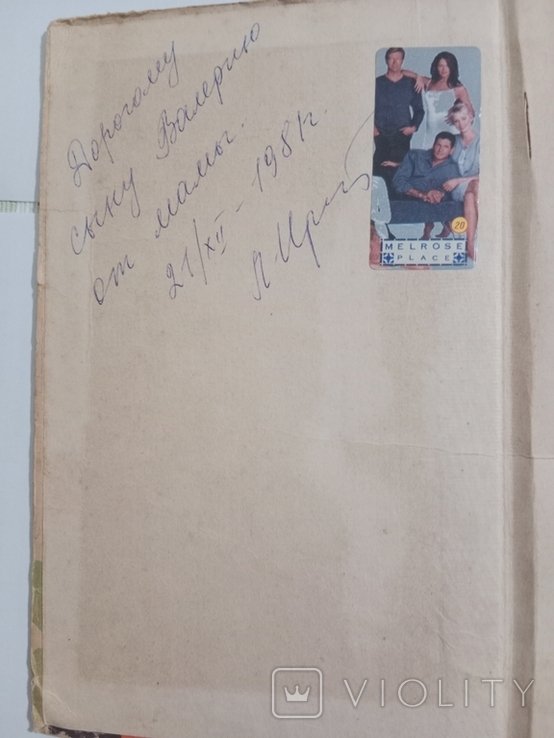 Дорогому
сыну Валерию
от мамы.
21/XII - 1981г.
20
MELROSE
PLACE
VIOLITY